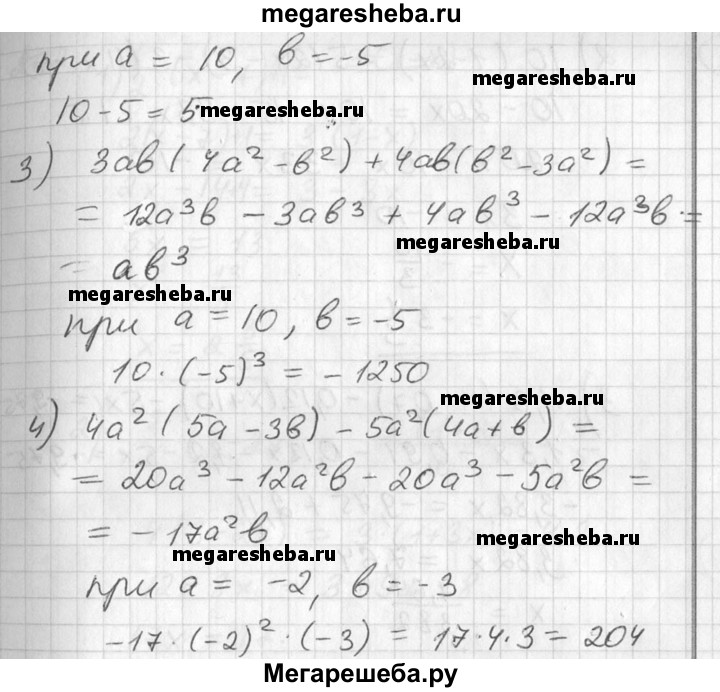 megaresheba.ru
при a = 10, b = -5
megaresheba.ru
10 - 5 = 5
megaresheba.ru
3) 3ab(4a² - b²) + 4ab(b² - 3a²) =
= 12a³b - 3ab³ + 4ab³ - 12a³b =
megaresheba.ru
= ab³
megaresheba.ru
при a = 10, b = -5
10 · (-5)³ = -1250
megaresheba.ru
4) 4a²(5a - 3b) - 5a²(4a + b) =
= 20a³ - 12a²b - 20a³ - 5a²b =
= -17a²b
megaresheba.ru
megaresheba.ru
при a = -2, b = -3
-17 · (-2)² · (-3) = 17·4·3 = 204
Мегарешеба.ру